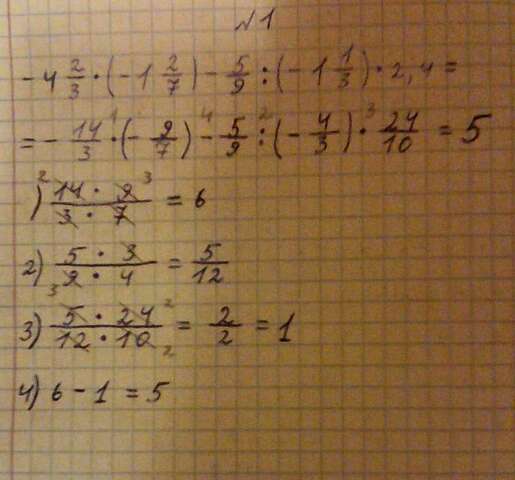 №1
- 4 2/3 · (- 1 2/7) - 5/9 : (- 1 1/3) · 2,4 =
= - 14/3 · (- 9/7) - 5/9 : (- 4/3) · 24/10 = 5
1) 14 · 9 / 3 · 7 = 6
2) 5 · 3 / 9 · 4 = 5/12
3) 5 · 24 / 12 · 10 = 2/2 = 1
4) 6 - 1 = 5